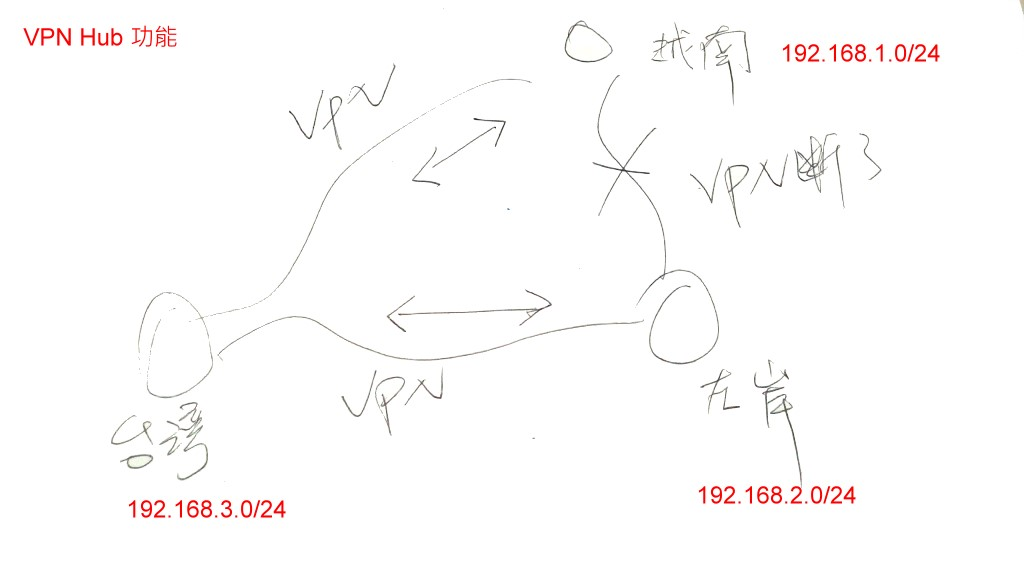 VPN Hub 功能
越南
192.168.1.0/24
VPN
VPN断了
VPN
台湾
192.168.3.0/24
岸
192.168.2.0/24